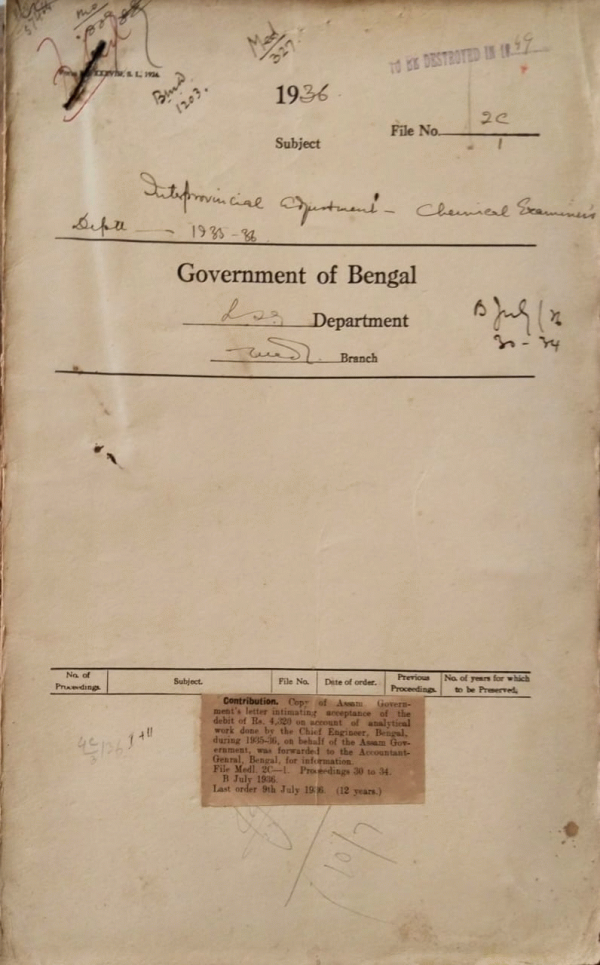 Med
327.
TO BE DESTROYED IN 19 49
XXXVIII. S. I., 1936.
1203.
1936.
File No. 2C
1
Subject
Interprovincial adjustment - Chemical Examiner's
Deptt — 1935-36
Government of Bengal
LSG Department
B July/36
30-34
Medl. Branch
No. of Proceedings.
Subject.
File No.
Date of order.
Previous Proceedings.
No. of years for which to be Preserved.
Contribution. Copy of Assam Govern-
ment's letter intimating acceptance of the
debit of Rs. 4,320 on account of analytical
work done by the Chief Engineer, Bengal,
during 1935-36, on behalf of the Assam Gov-
ernment, was forwarded to the Accountant-
Genral, Bengal, for information.
File Medl. 2C—1. Proceedings 30 to 34.
B July 1936.
Last order 9th July 1936. (12 years.)
10/7